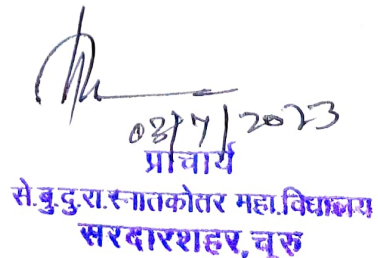 03/7/2023
प्राचार्य
से.बु.दु.रा.स्नातकोतर महा.विद्यालय
सरदारशहर,चूरु